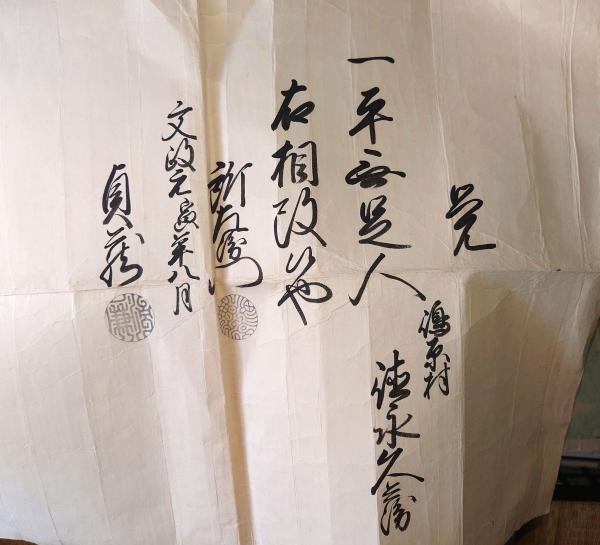 覚
一平無足人
原村
徳永久蔵
右相改候也
新左衛門
文政元寅年八月
貞蔵